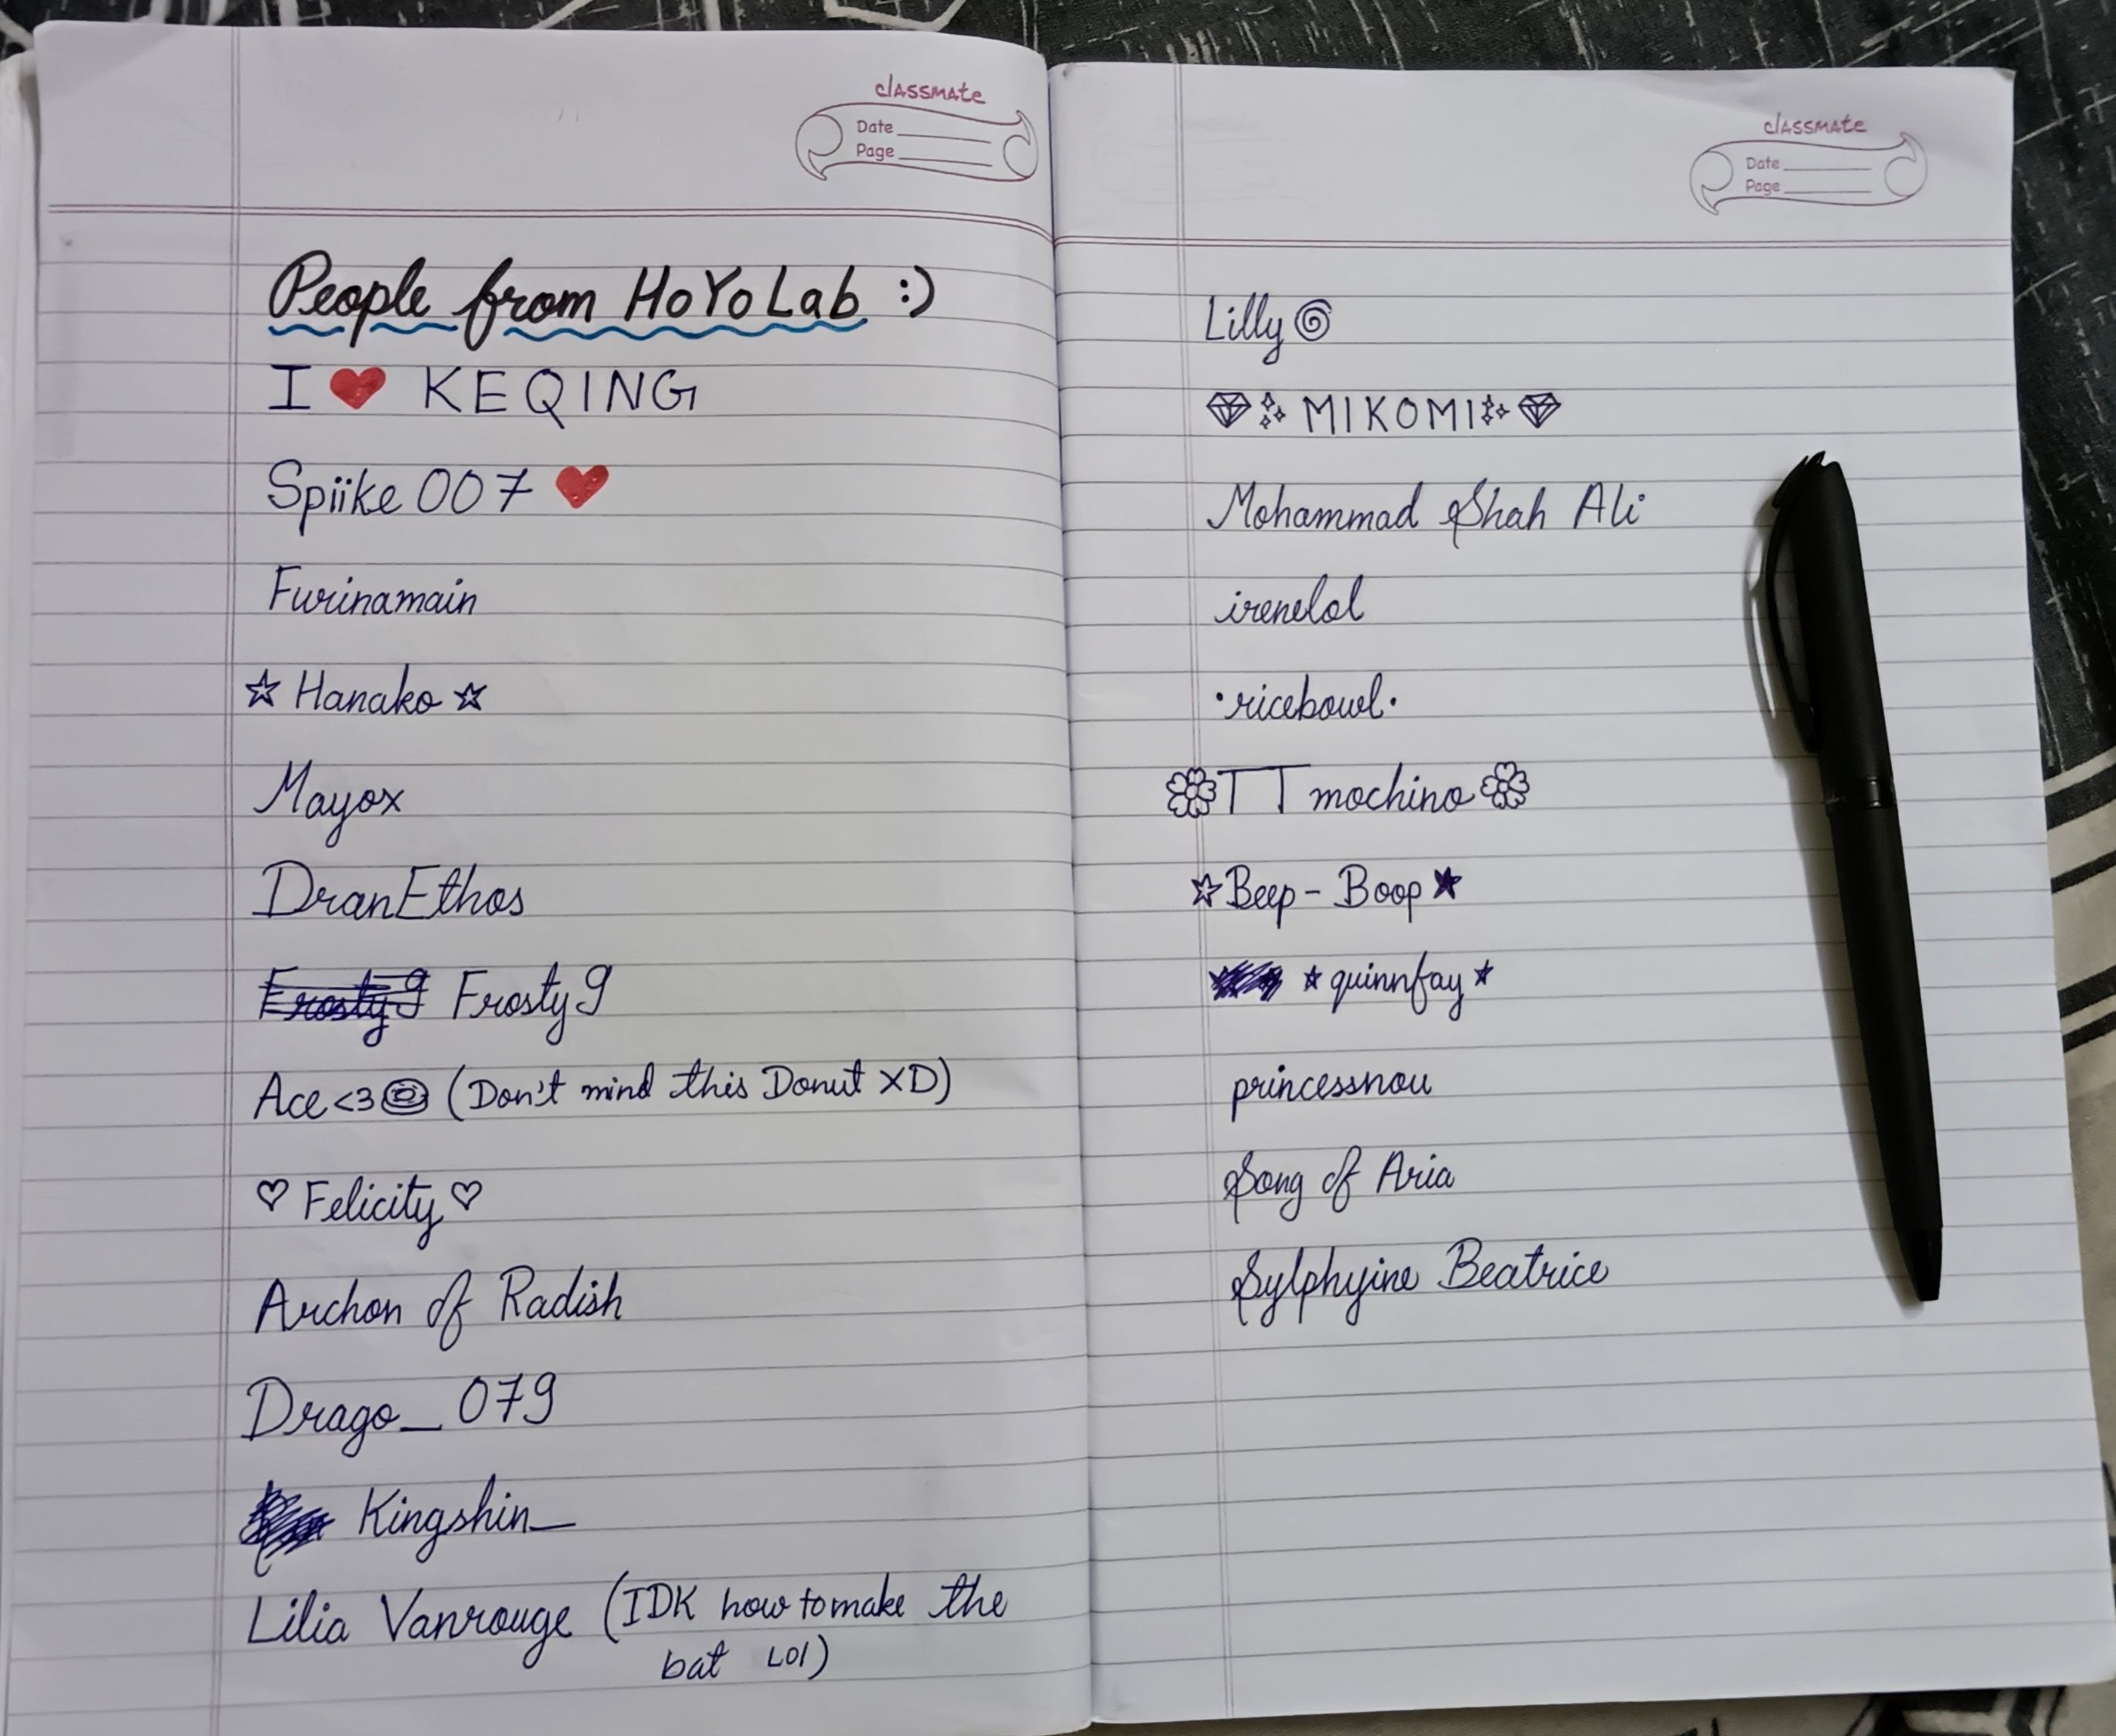 classmate
Date
Page
People from HoYoLab :)
I ❤ KEQING
Spiike 007 ❤
Furinamain
☆ Hanako ☆
Mayox
DranEthos
Frosty9 Frosty9
Ace <3 (Don't mind this Donut XD)
♡ Felicity ♡
Archon of Radish
Drago_079
Kingshin_
Lilia Vanrouge (IDK how to make the
bat LOl)
classmate
Date
Page
Lilly
MIKOMI
Mohammad Shah Ali
irenelol
·ricebowl·
TT mochino
☆Beep-Boop★
★quinnfay★
princessnou
Song of Aria
Sylphyine Beatrice